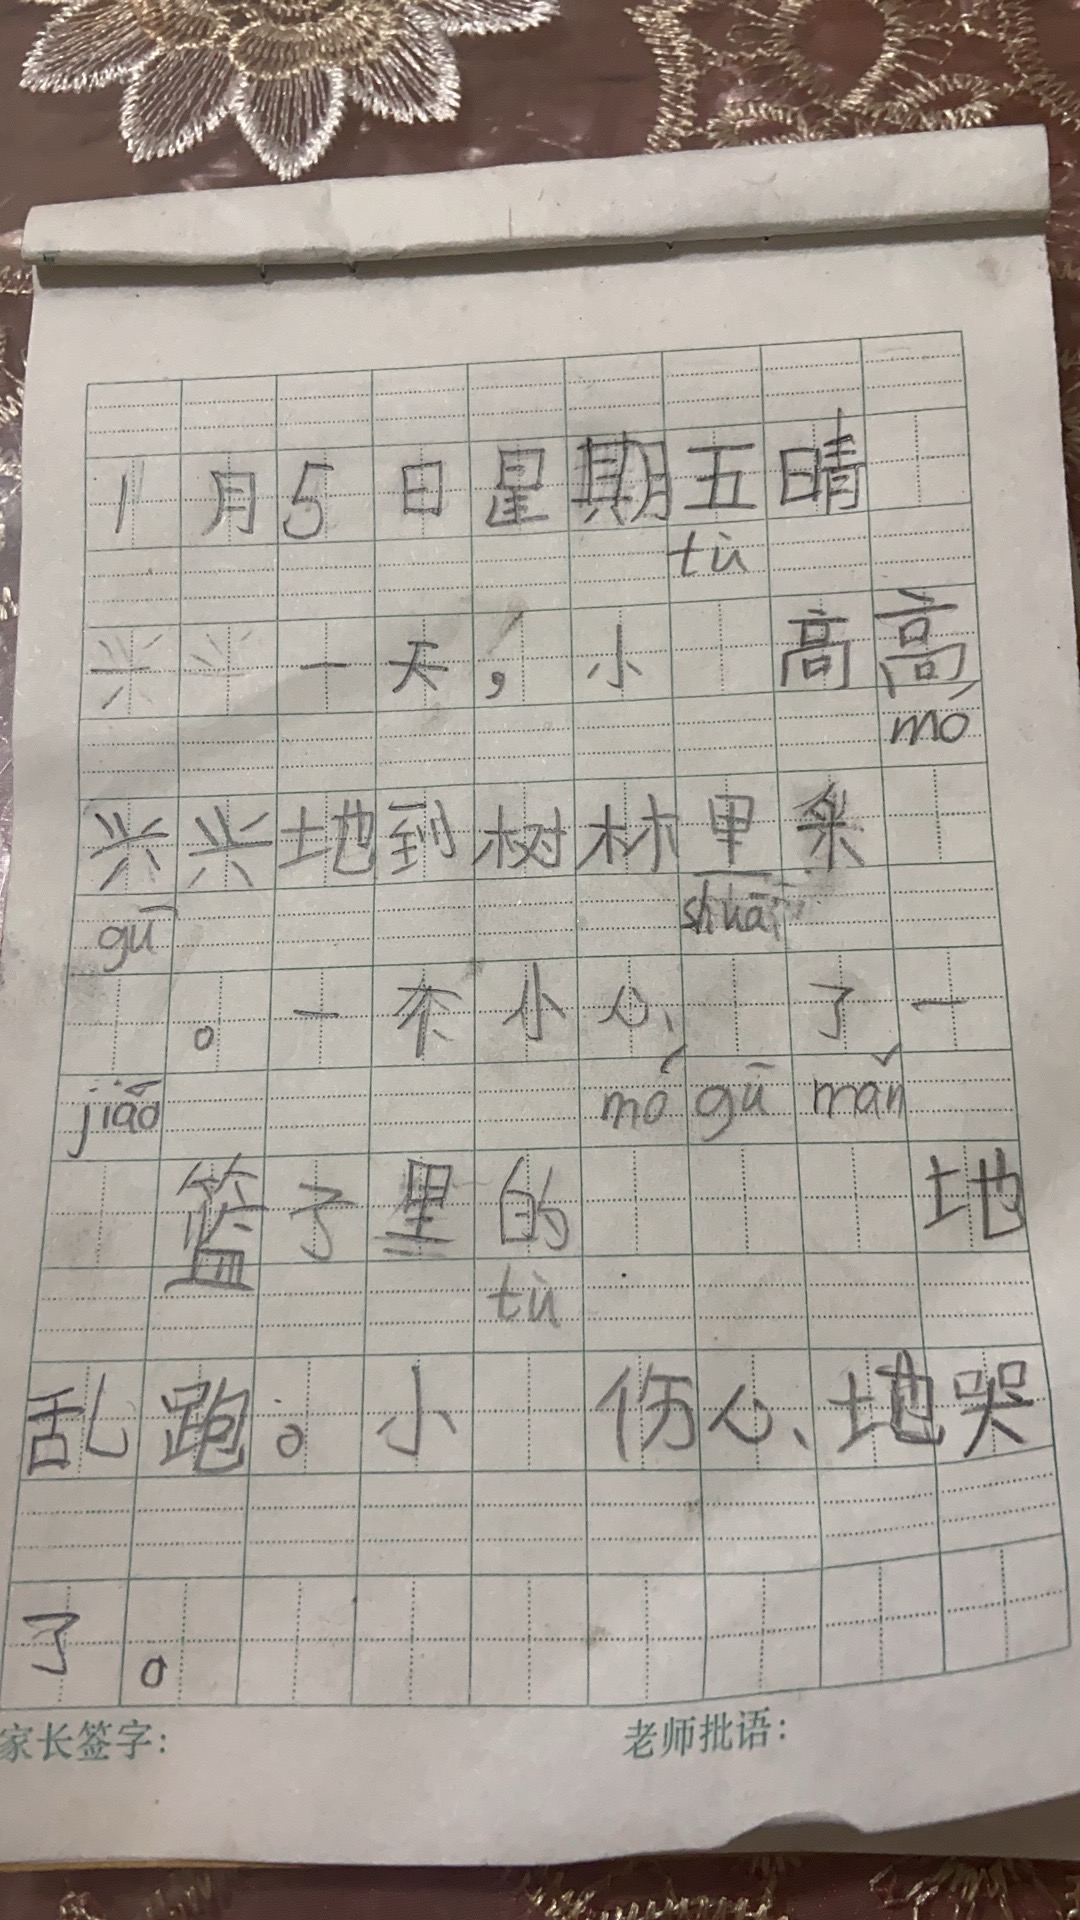 1月5日星期五晴
tù
兴 一天，小 高高
mó
兴兴地到树林里采
gū shuāi
。一不小心 了一
jiāo mó gū mǎn
篮子里的 地
tù
乱跑。小 伤心地哭
了。
家长签字： 老师批语：